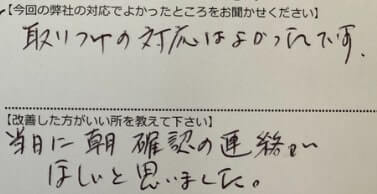 【今回の弊社の対応でよかったところをお聞かせください】
取りつけの対応はよかったです.
【改善した方がいい所を教えて下さい】
当日に朝 確認の連絡が
ほしいと思いました。